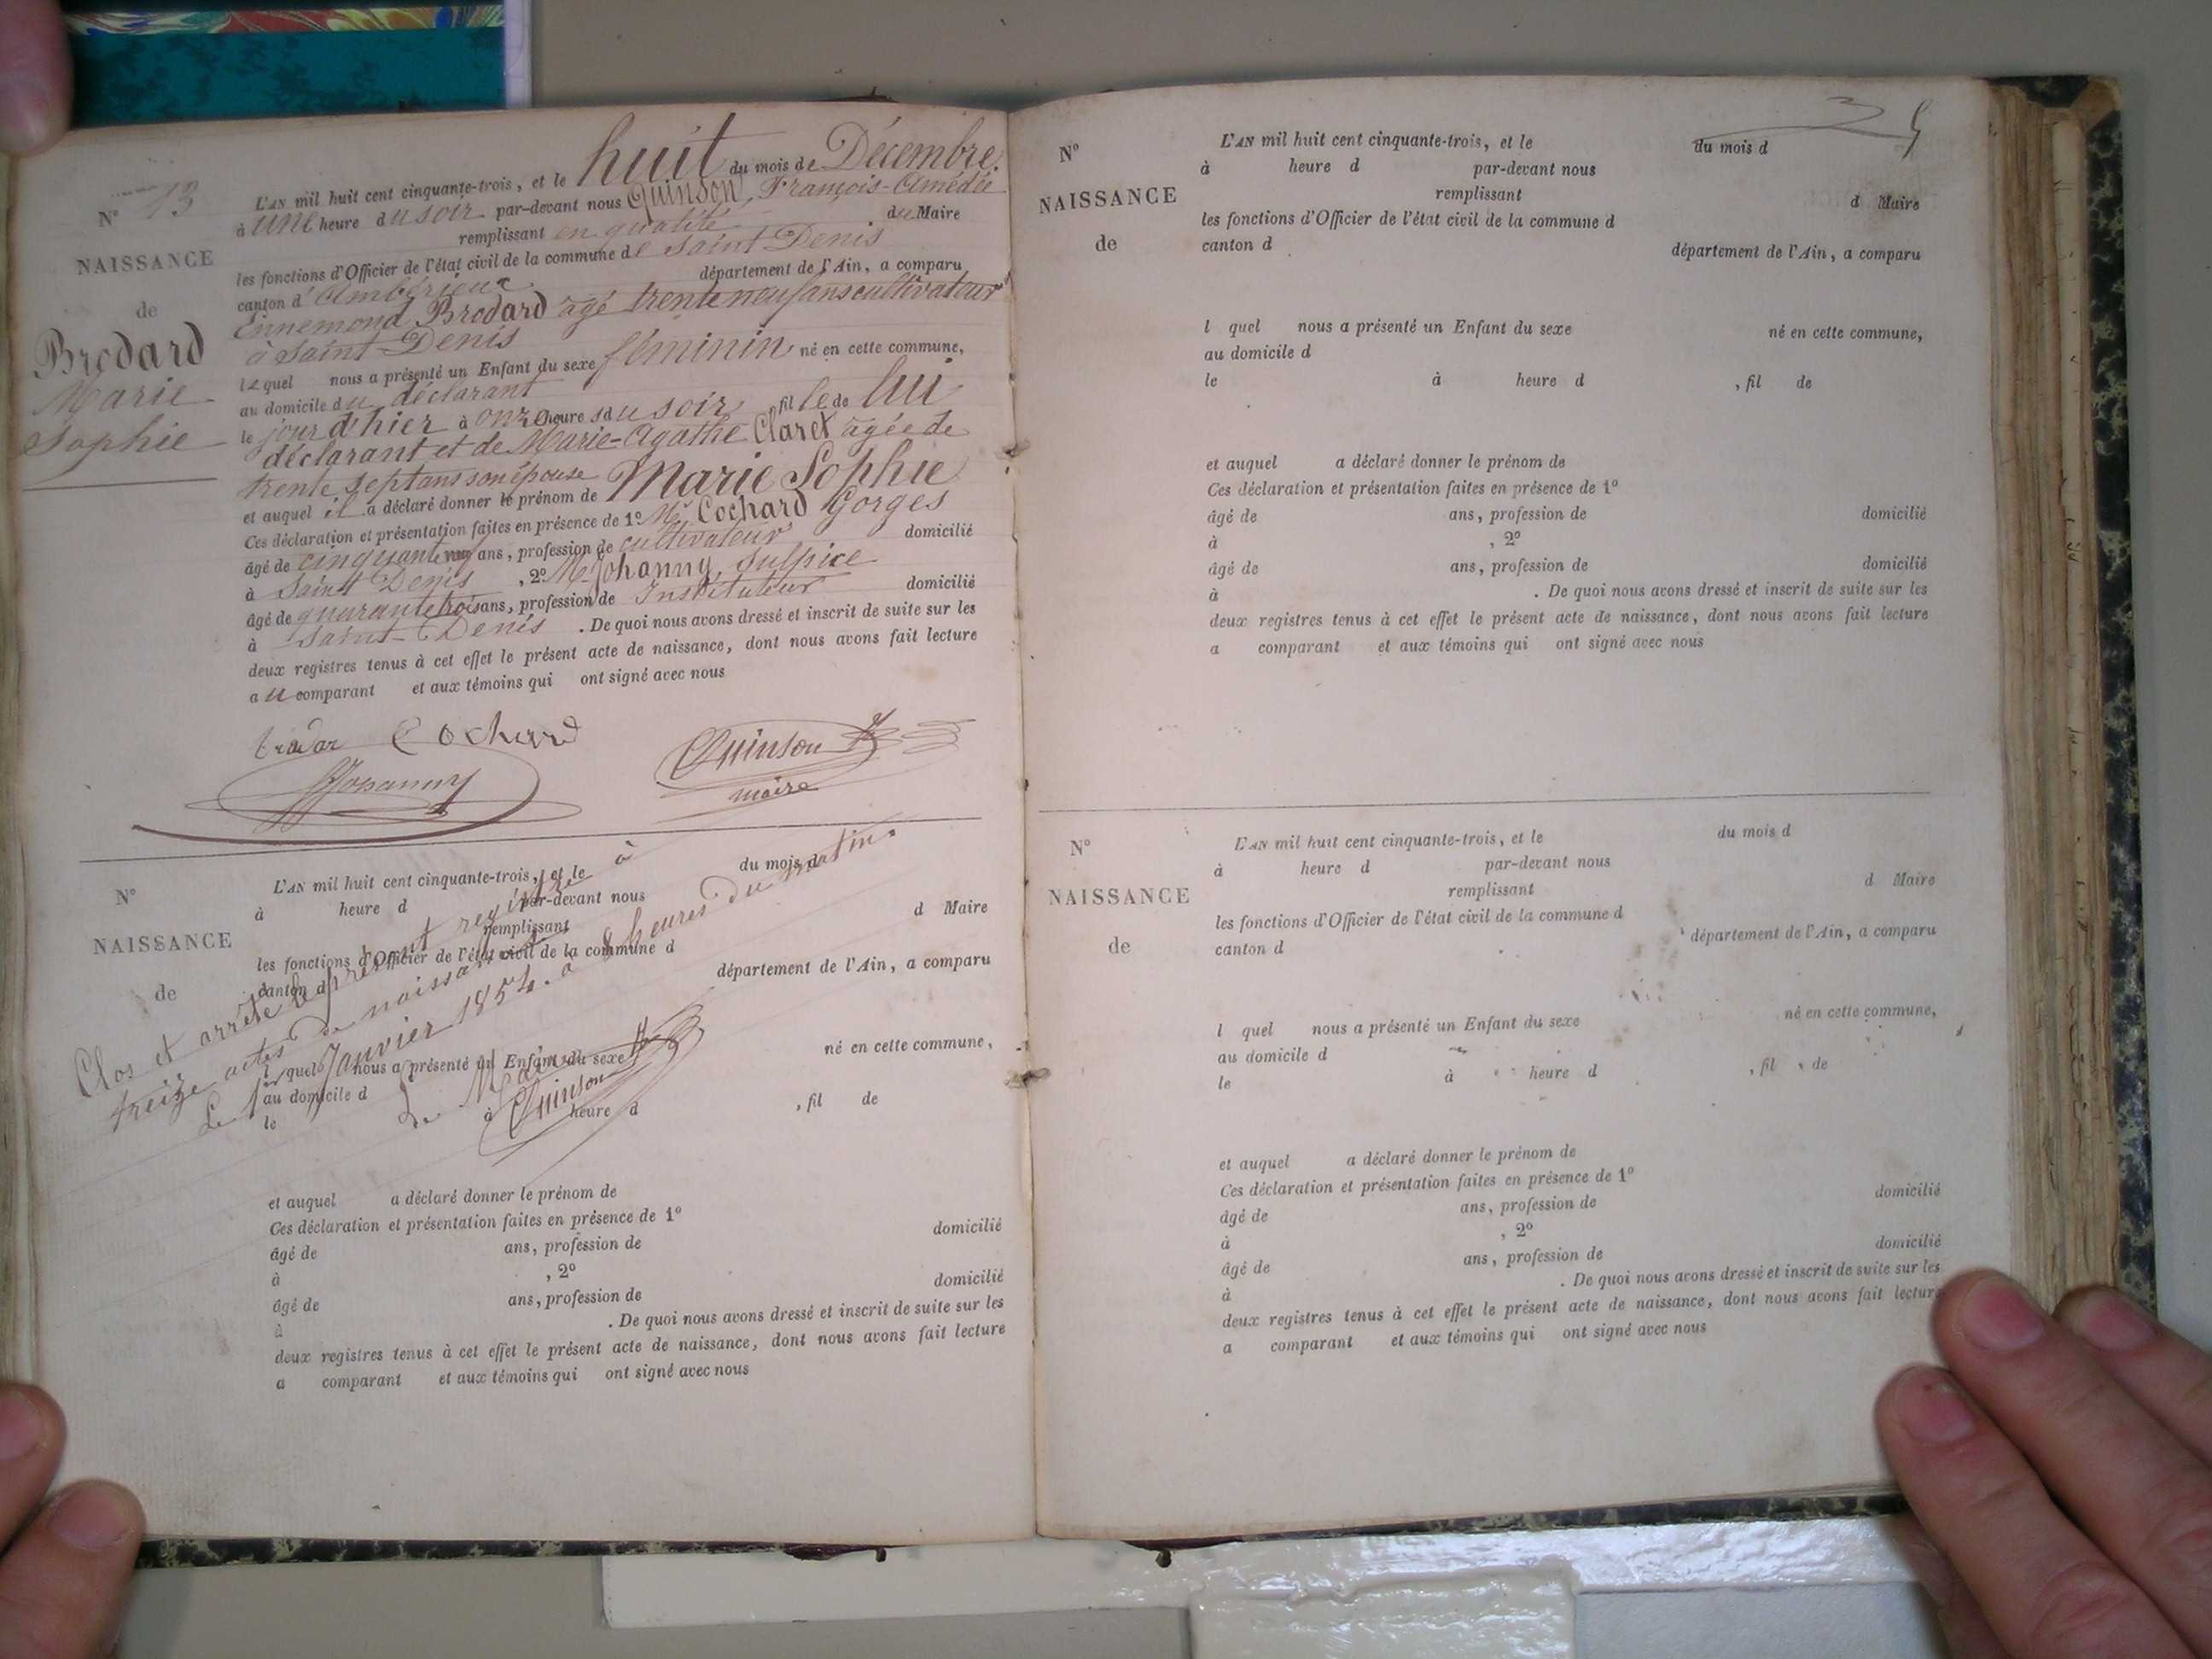 N° 13
NAISSANCE
de
Brodard
Marie
Sophie
L'AN mil huit cent cinquante-trois, et le huit du mois de Décembre
à une heure du soir par-devant nous Quinson, François-Amédée
remplissant en qualité du Maire
les fonctions d'Officier de l'état civil de la commune de Saint Denis
canton d'Ambérieux département de l'Ain, a comparu
Ennemond Brodard âgé trente neuf ans cultivateur
à Saint-Denis
lequel nous a présenté un Enfant du sexe féminin né en cette commune,
au domicile du déclarant
le jour d'hier à onze heures du soir, fille de lui
déclarant et de Marie-Agathe Claret âgée de
trente sept ans son épouse
et auquel il a déclaré donner le prénom de Marie Sophie
Ces déclaration et présentation faites en présence de 1° Mr Cochard Gorges
âgé de cinquante ans, profession de cultivateur domicilié
à Saint Denis, 2° Mr Johanny, Sulpice
âgé de quarante trois ans, profession de Instituteur domicilié
à Saint-Denis. De quoi nous avons dressé et inscrit de suite sur les
deux registres tenus à cet effet le présent acte de naissance, dont nous avons fait lecture
au comparant et aux témoins qui ont signé avec nous
Cochard
Johanny
Quinson
maire
N°
NAISSANCE
de
L'AN mil huit cent cinquante-trois, et le du mois d
à heure d par-devant nous
remplissant d Maire
les fonctions d'Officier de l'état civil de la commune d
canton d département de l'Ain, a comparu
l quel nous a présenté un Enfant du sexe né en cette commune,
au domicile d
le à heure d , fil de
Clos et arrêté le présent registre à
treize actes de naissance
Le 1er Janvier 1854. à 8 heures du matin.
Le Maire
Quinson
et auquel a déclaré donner le prénom de
Ces déclaration et présentation faites en présence de 1°
âgé de ans, profession de domicilié
à , 2°
âgé de ans, profession de domicilié
à . De quoi nous avons dressé et inscrit de suite sur les
deux registres tenus à cet effet le présent acte de naissance, dont nous avons fait lecture
a comparant et aux témoins qui ont signé avec nous
N°
NAISSANCE
de
L'AN mil huit cent cinquante-trois, et le du mois d
à heure d par-devant nous
remplissant d Maire
les fonctions d'Officier de l'état civil de la commune d
canton d département de l'Ain, a comparu
l quel nous a présenté un Enfant du sexe né en cette commune,
au domicile d
le à heure d , fil de
et auquel a déclaré donner le prénom de
Ces déclaration et présentation faites en présence de 1°
âgé de ans, profession de domicilié
à , 2°
âgé de ans, profession de domicilié
à . De quoi nous avons dressé et inscrit de suite sur les
deux registres tenus à cet effet le présent acte de naissance, dont nous avons fait lecture
a comparant et aux témoins qui ont signé avec nous
N°
NAISSANCE
de
L'AN mil huit cent cinquante-trois, et le du mois d
à heure d par-devant nous
remplissant d Maire
les fonctions d'Officier de l'état civil de la commune d
canton d département de l'Ain, a comparu
l quel nous a présenté un Enfant du sexe né en cette commune,
au domicile d
le à heure d , fil de
et auquel a déclaré donner le prénom de
Ces déclaration et présentation faites en présence de 1°
âgé de ans, profession de domicilié
à , 2°
âgé de ans, profession de domicilié
à . De quoi nous avons dressé et inscrit de suite sur les
deux registres tenus à cet effet le présent acte de naissance, dont nous avons fait lecture
a comparant et aux témoins qui ont signé avec nous